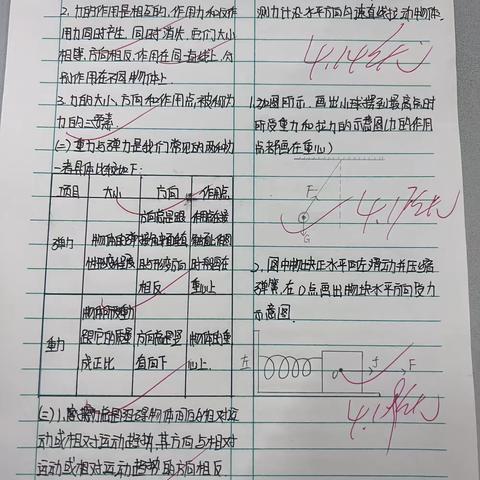 2. 力的作用是相互的,作用力和反作
用力同时产生,同时消失,它们大小
相等,方向相反,作用在同一直线上,分
别作用在不同物体上.
3. 力的大小、方向和作用点,被称为
力的三要素.
(二)重力与弹力是我们常见的两种力
二者具体比较如下:
项目 大小 方向 作用点
弹力
性形变程度
相反
重心上
重力
跟它的质量
成正比
方向总是竖
直向下
物体的重
心上.
动或相对运动趋势,其方向与相对
运动或相对运动趋势的方向相反
测力计沿水平方向匀速直线拉动物体.
4.14
1.如图所示,画出小球摆到最高点时
所受重力和拉力的示意图(力的作用
点都画在重心)
F
G
4.17
2. 图中物块正水平向左滑动并压缩
弹簧,在O点画出物块水平方向受力
示意图.
左
f F